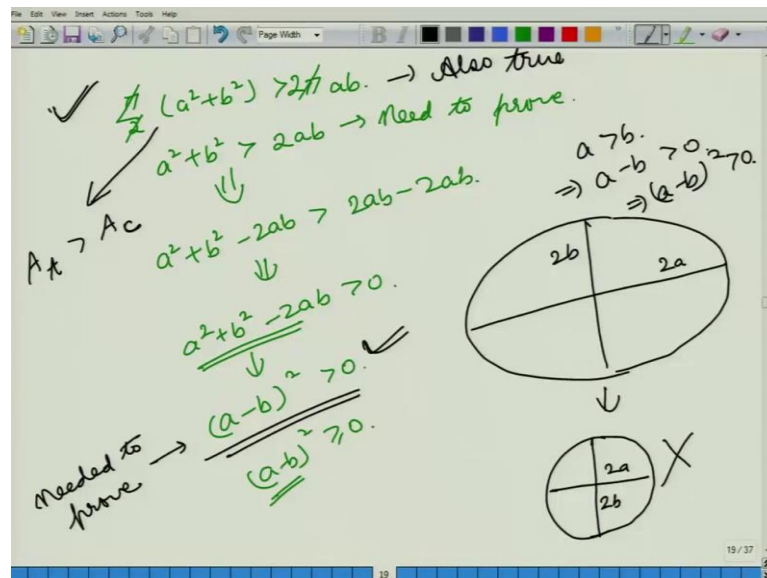 File Edit View Insert Actions Tools Help
Page Width
B I
π/2 (a²+b²) > 2π/2 ab. → Also true
a²+b² > 2ab → Need to prove.
⇓
A_A > A_C
a²+b² -2ab > 2ab - 2ab.
⇓
a²+b² -2ab > 0.
↓
(a-b)² > 0.
Needed to prove →
(a-b)² ≥ 0.
a > b.
⇒ a-b > 0.
⇒ (a-b)² > 0.
2b
2a
↓
2a
2b
X
19 / 37
19